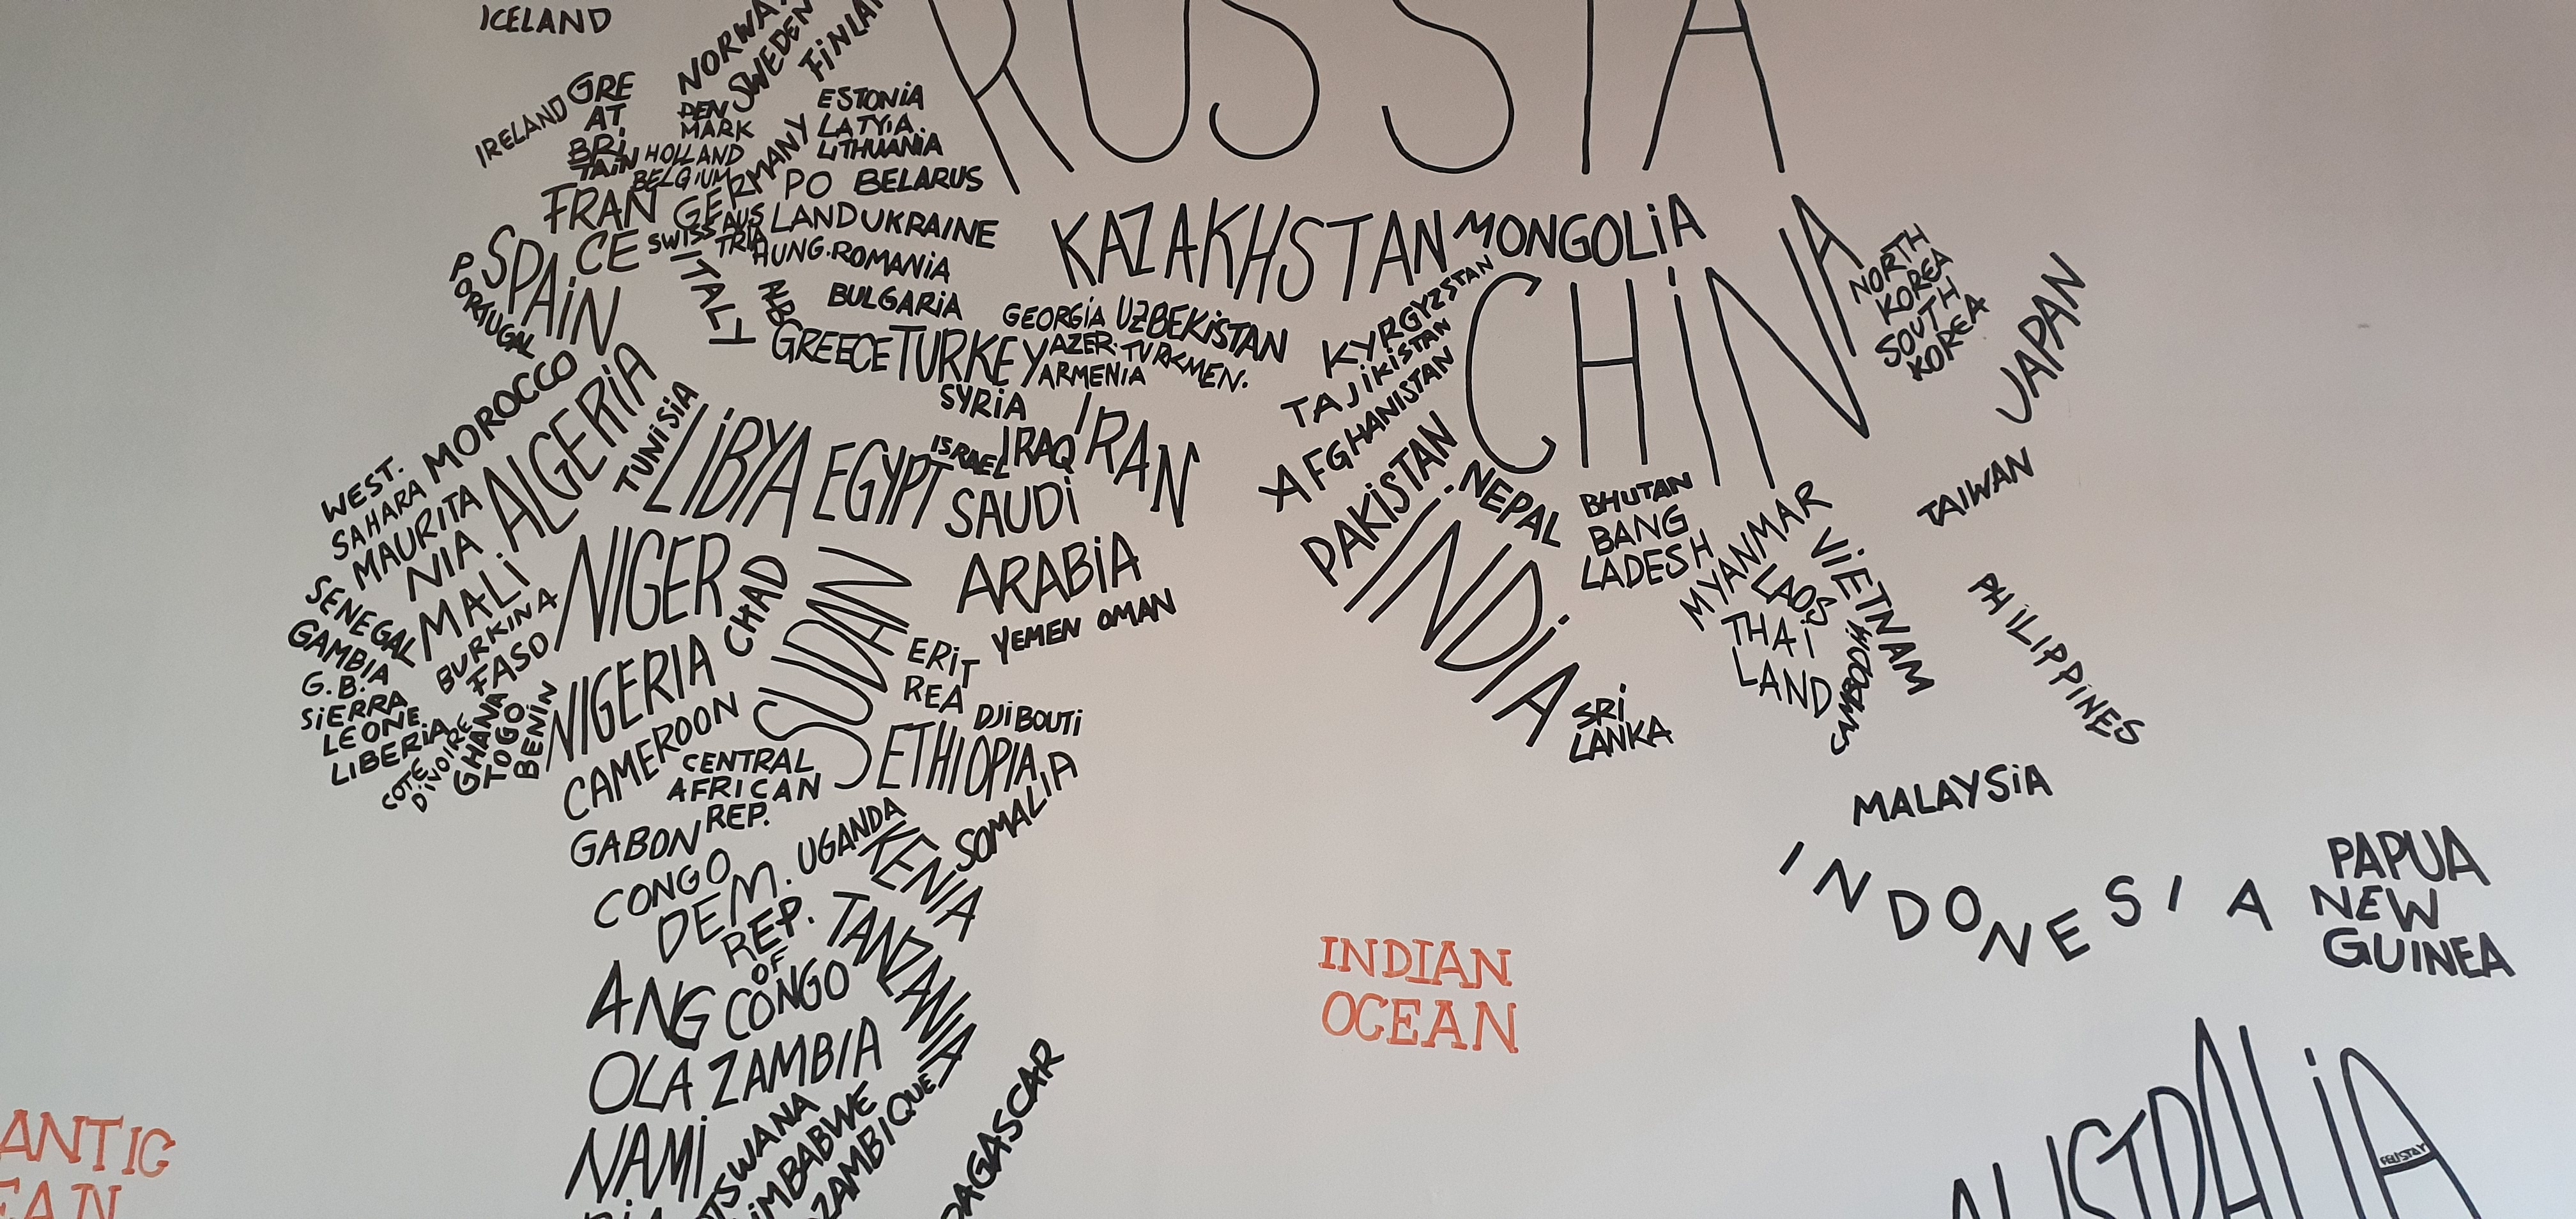 ICELAND
NORWA
SWEDEN
FiNLA
RUSSIA
IRELAND
GRE
AT
BRi
TAiN
DEN
MARK
ESTONiA
LATViA
LiTHUANiA
HOLLAND
BELGIUM
GERMANY
PO
LAND
BELARUS
FRAN
CE
SWISS
AUS
TRIA
UKRAINE
HUNG.
ROMANiA
P
ORTUGAL
SPAiN
ITALY
ALB
BULGARiA
GREECE
TURKEY
GEORGiA
AZER.
ARMENIA
KAZAKHSTAN
UZBEKiSTAN
TURKMEN.
MONGOLiA
KYRGYZSTAN
TAJiKiSTAN
AFGHANISTAN
PAKiSTAN
CHiNA
NORTH
KOREA
SOUTH
KOREA
JAPAN
TAIWAN
SYRiA
ISRAEL
IRAQ
IRAN
SAUDi
ARABiA
YEMEN
OMAN
MOROCCO
ALGERiA
TUNiSiA
LiBYA
EGYPT
WEST.
SAHARA
MAURITA
NIA
MALi
SENEGAL
GAMBIA
G.B.
SiERRA
LEONE
LIBERiA
COTE
D'iVOIRE
GHANA
TOGO
BENiN
BURKINA
FASO
NIGER
NIGERIA
CHAD
SUDAN
S
ERiT
REA
DJiBOUTi
ETHIOPIA
SOMALIA
CAMEROON
CENTRAL
AFRICAN
REP.
GABON
CONGO
DEM.
REP.
OF
CONGO
UGANDA
KENiA
TANZANIA
ANG
OLA
ZAMBIA
NAMi
TSWANA
iMBABWE
ZAMBIQUE
DAGASCAR
NEPAL
iNDiA
BHUTAN
BANG
LADESH
MYANMAR
LAOS
ViETNAM
THAi
LAND
SRi
LANKA
PHiLiPPiNES
MALAYSiA
INDONESIA
PAPUA
NEW
GUINEA
INDIAN
OCEAN
ANTIC
EAN
AUSTRALiA